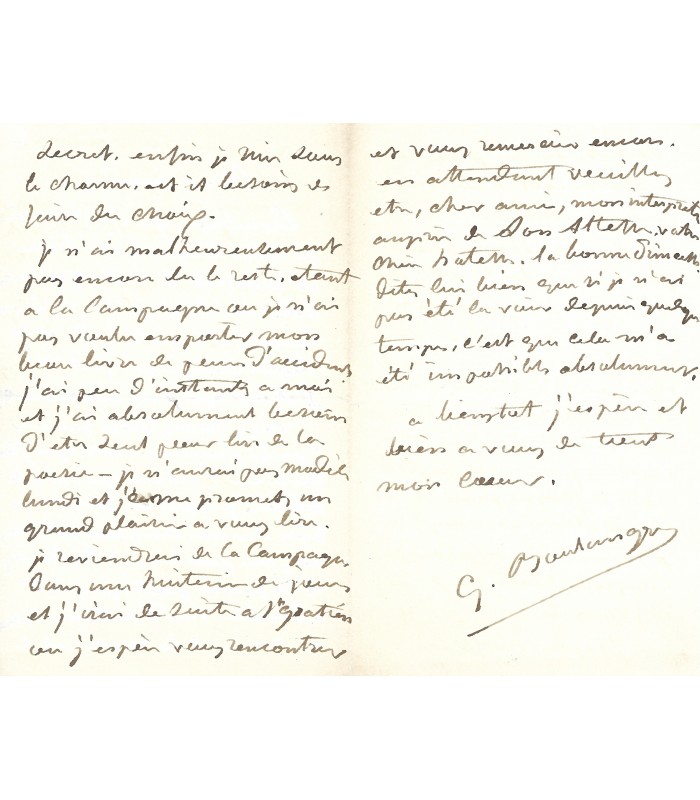 secret. enfin je suis sous
le charme. est il besoin de
jouir du choix.
je n'ai malheureusement
pas encore lu le reste. etant
a la Campagne ou je n'ai
pas voulu emporter mon
beau livre de peur d'accident
j'ai peu d'instants a moi
et j'ai absolument besoin
d'etre seul pour lire de la
poesie — je n'aurai pas modèle
lundi et je me promets un
grand plaisir a vous lire.
je reviendrai de la Campagne
dans une huitaine de jours
et j'irai de suite a St Gratien
ou j'espère vous rencontrer
et vous remercier encore.
en attendant veuillez
etre, cher ami, mon interprete
auprès de Son Altesse. votre
dites lui bien que si je n'ai
pas été la voir depuis quelque
temps, c'est que cela m'a
été impossible absolument.
a bientot j'espère et
bien a vous de tout
mon coeur.
G. Boulanger